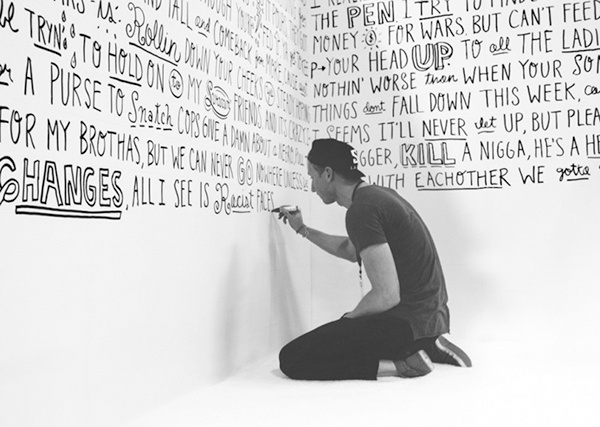 TALL and COMEBACK for
is Rollin DOWN YOUR CHEEKS
be TRYN' TO HOLD ON to MY FRIENDS AND IT'S CRAZY
A PURSE TO Snatch COPS GIVE A DAMN ABOUT A
FOR MY BROTHAS, BUT WE CAN NEVER GO NOWHERE UNLESS
CHANGES, ALL I SEE IS Racist FACES
THE PEN I TRY TO
MONEY FOR WARS, BUT CAN'T FEED
YOUR HEAD UP TO all THE LADI
NOTHIN' WORSE than WHEN YOUR SON
THINGS dont FALL DOWN THIS WEEK,
SEEMS IT'LL NEVER let UP, BUT PLEA
GGER, KILL A NIGGA, HE'S A HE
WITH EACHOTHER WE gotta